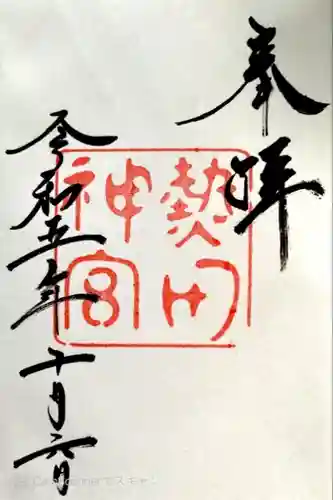 奉拝
熱田
神宮
令和五年十月六日